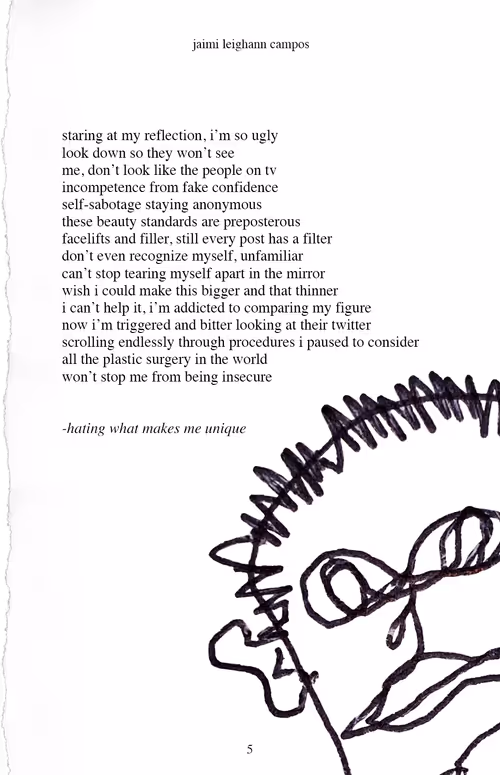 jaimi leighann campos
staring at my reflection, i'm so ugly
look down so they won't see
me, don't look like the people on tv
incompetence from fake confidence
self-sabotage staying anonymous
these beauty standards are preposterous
facelifts and filler, still every post has a filter
don't even recognize myself, unfamiliar
can't stop tearing myself apart in the mirror
wish i could make this bigger and that thinner
i can't help it, i'm addicted to comparing my figure
now i'm triggered and bitter looking at their twitter
scrolling endlessly through procedures i paused to consider
all the plastic surgery in the world
won't stop me from being insecure
-hating what makes me unique
5